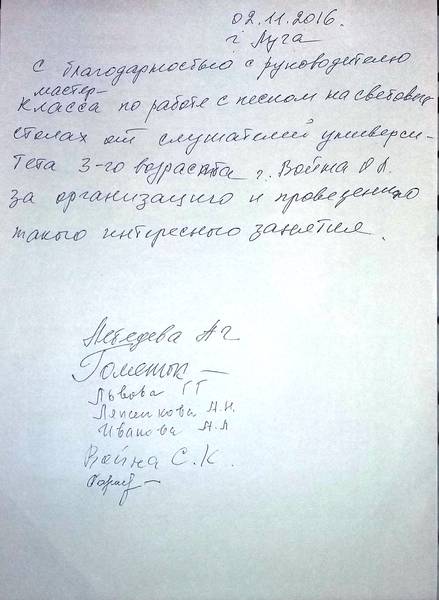 02.11.2016.
г. Луга
С благодарностью с руководителю
мастер-
класса по работе с песком на световых
столах от слушателей универси-
тета 3-го возраста г. Война
за организацию и проведению
такого интересного занятия.
Лебедева А Г
Львова Г Г
Ляпенкова Н.Н.
Иванова А.А
Война С.К.